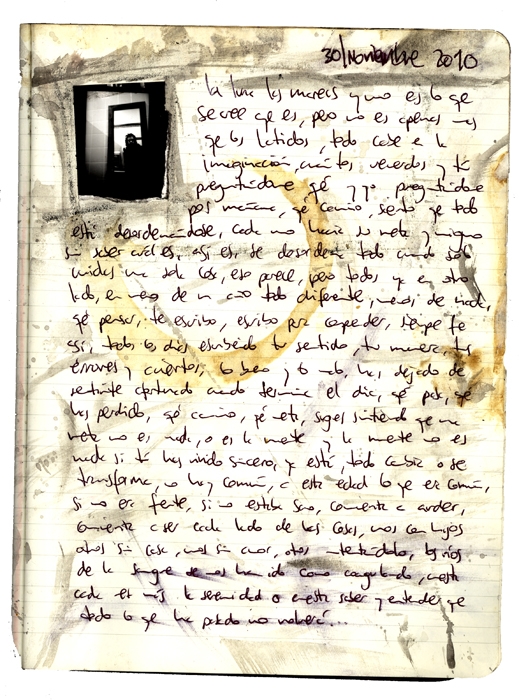 30/Noviembre 2010
la luna las mareas y uno es lo que
se cree que es, pero no es apenas más
que los latidos, todo cabe en la
imaginación, cuántos recuerdos y tú
preguntándome qué y yo preguntándome
por mañana, qué camino, siento que todo
está desordenándose, cada uno hacia su meta y ninguno
sin saber cuál es, así es, se desordena todo cuando
una sola cosa, eso parece, pero todos ya en otro
lado, en menos de un año todo diferente, menos de nada,
qué pensar, te escribo, escribo para comprender, siempre fue
así, todos los días escribiendo tu sentido, tu manera, tus
errores y aciertos, lo bueno y lo malo, has dejado de
sentirte cuando termina el día, qué pasa, qué
has perdido, qué camino, qué meta, sigues sintiendo que una
meta no es nada, o es la muerte y la muerte no es
nada si tú has vivido sincero, ya está, todo cambia o se
transforma, no hay común, a esta edad lo que era común,
si no era fuerte, si no estaba sano, comienza a arder,
comienza a ser cada lado de las cosas, unos con hijos
otros sin casa, unos sin amor, otros intentándolo, los ríos
de la sangre se nos han ido como coagulando, cuesta
cada vez más la serenidad o cuesta saber y entender que
todo lo que ha pasado no volverá...